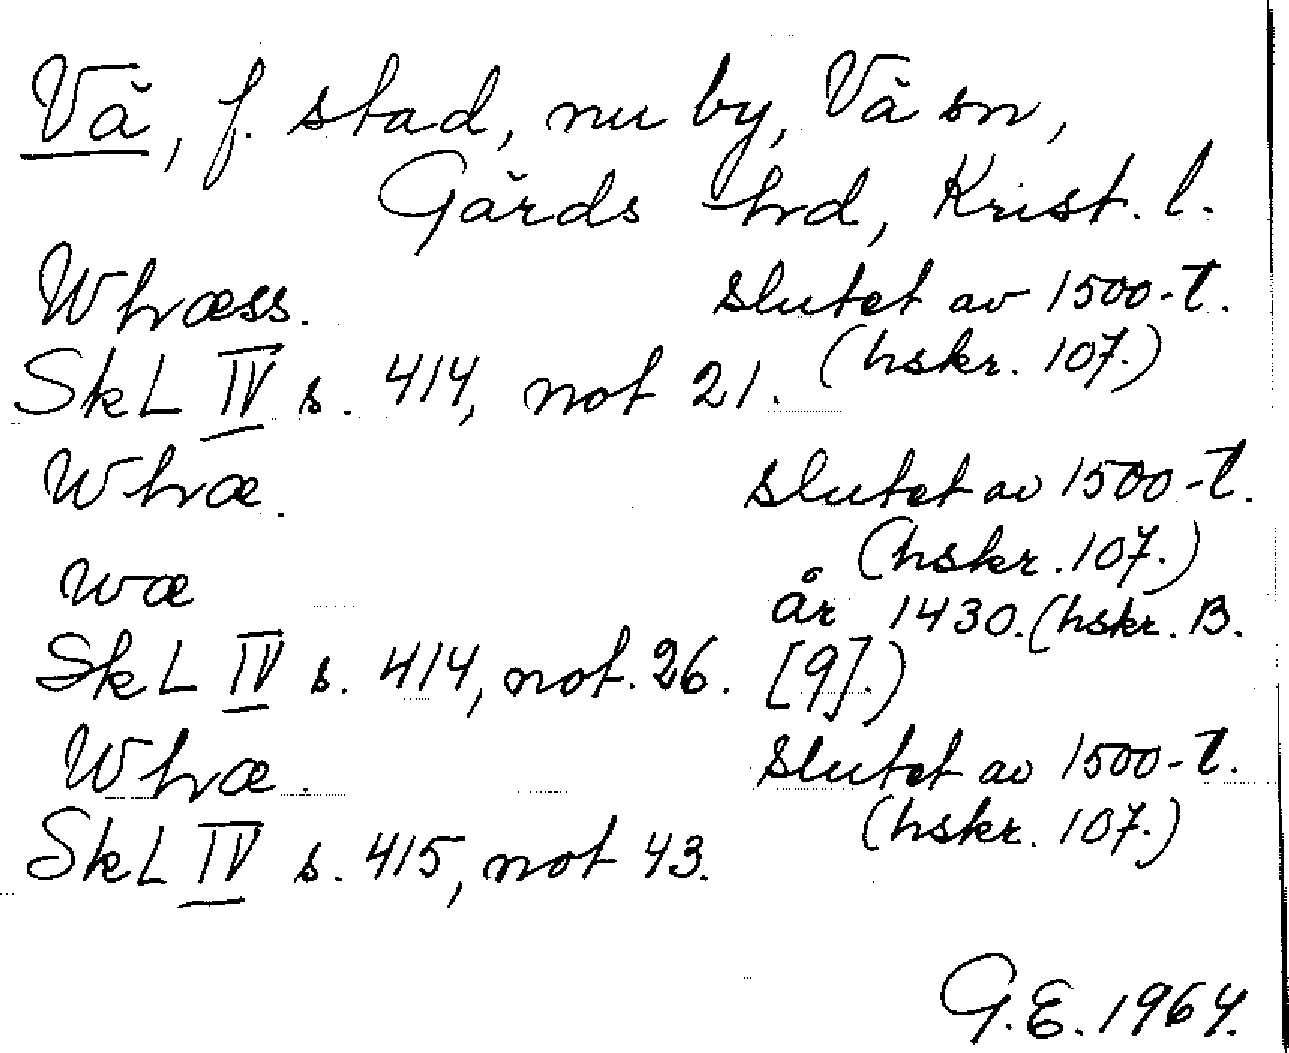 Vä, f. stad, nu by, Vä sn,
Gärds hd, Krist. l.
Whæss. slutet av 1500-t.
(hskr. 107.)
SkL IV s. 414, not 21.
Whæ. slutet av 1500-t.
(hskr. 107.)
wæ år 1430. (hskr. B.
SkL IV s. 414, not. 26. [9].)
Whæ. slutet av 1500-t.
(hskr. 107.)
SkL IV s. 415, not 43.
G.E. 1964.